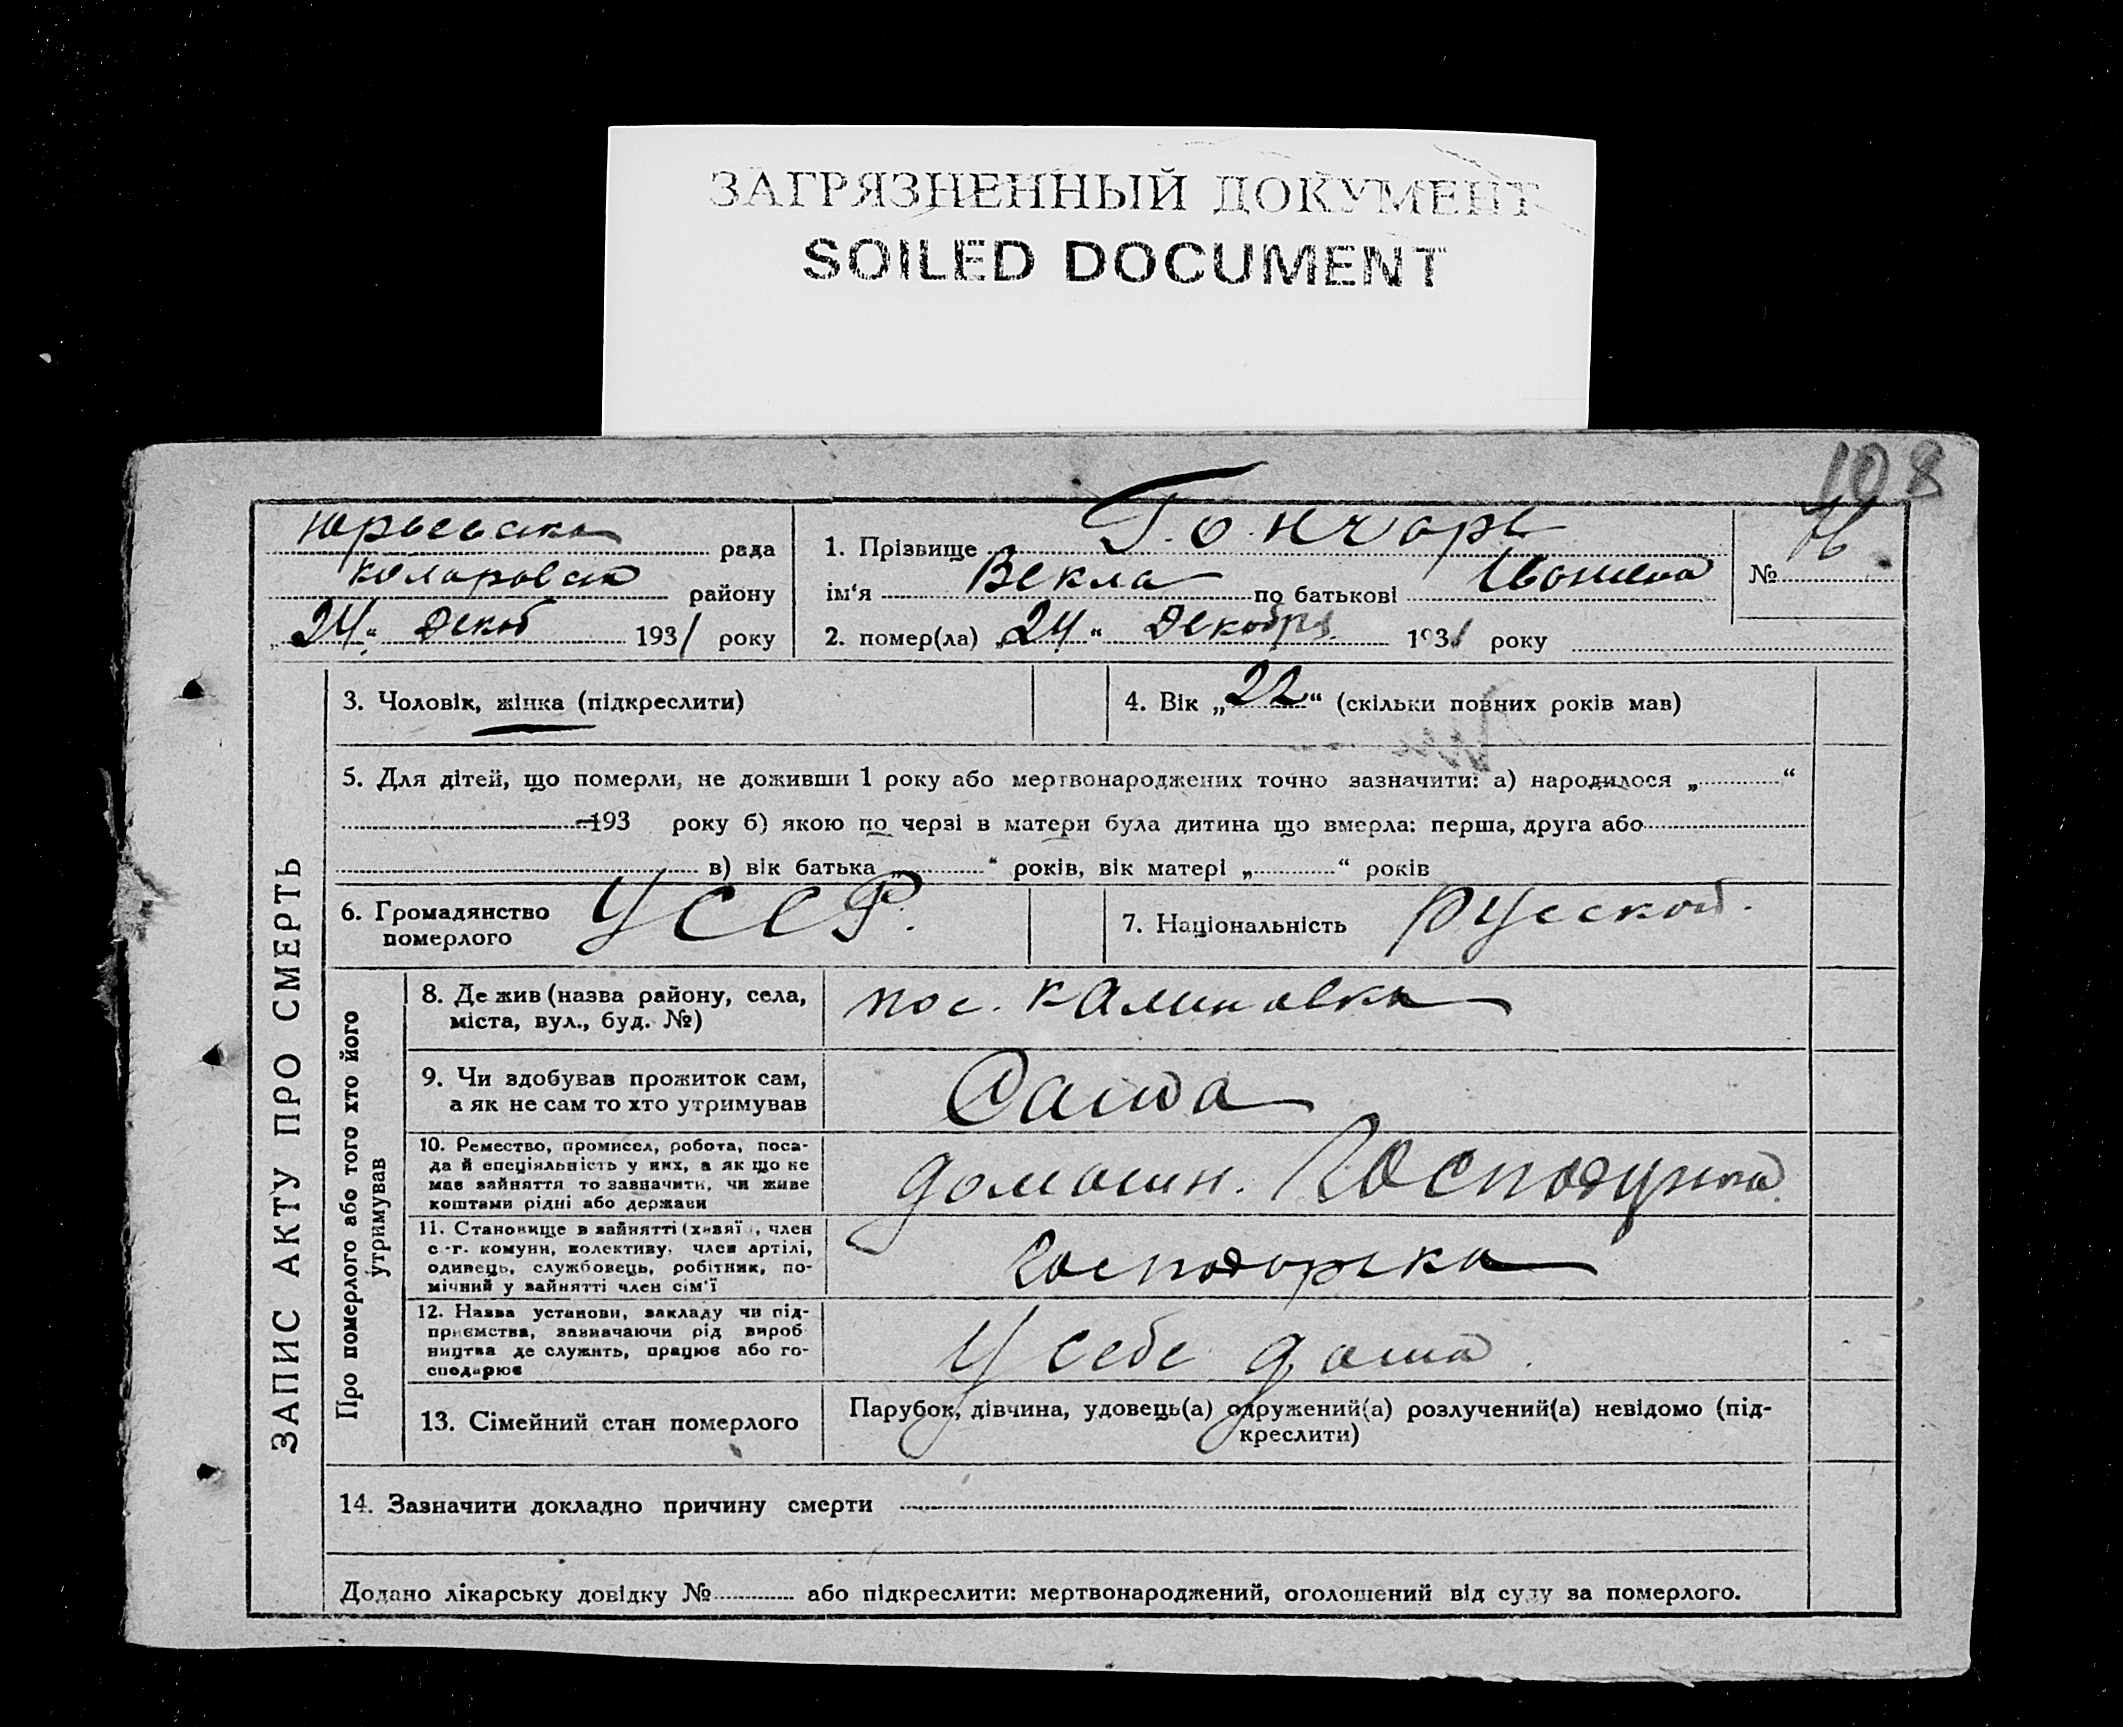 ЗАГРЯЗНЕННЫЙ ДОКУМЕНТ
SOILED DOCUMENT
108
Юрьевска рада
Коларовск району
„24“ декаб 1931 року
1. Прізвище Гончарь
ім'я Векла по батькові Ивановна
2. помер(ла) „24“ Декабря 1931 року
№ 76
ЗАПИС АКТУ ПРО СМЕРТЬ
3. Чоловік, жінка (підкреслити)
4. Вік „22“ (скільки повних років мав)
5. Для дітей, що померли, не доживши 1 року або мертвонароджених точно зазначити: а) народилося „ “
193 року б) якою по черзі в матери була дитина що вмерла: перша, друга або
в) вік батька „ “ років, вік матері „ “ років
6. Громадянство
померлого
УССР.
7. Національність Русской.
Про померлого або того хто його
утримував
8. Де жив (назва району, села,
міста, вул., буд. №)
пос. Калиновка
9. Чи здобував прожиток сам,
а як не сам то хто утримував
Сама
10. Ремество, промисел, робота, поса-
да й спеціяльність у них, а як що не
має зайняття то зазначити, чи живе
коштами рідні або держави
домашн.
11. Становище в зайнятті (хазяїн, член
с.-г. комуни, колективу, член артілі,
одинець, службовець, робітник, по-
мічний у зайнятті член сім'ї
12. Назва установи, закладу чи під-
приємства, зазначаючи рід вироб
ництва де служить, працює або го-
сподарює
У себе дома.
13. Сімейний стан померлого
Парубок, дівчина, удовець(а) одружений(а) розлучений(а) невідомо (під-
креслити)
14. Зазначити докладно причину смерти
Додано лікарську довідку № або підкреслити: мертвонароджений, оголошений від суду за померлого.